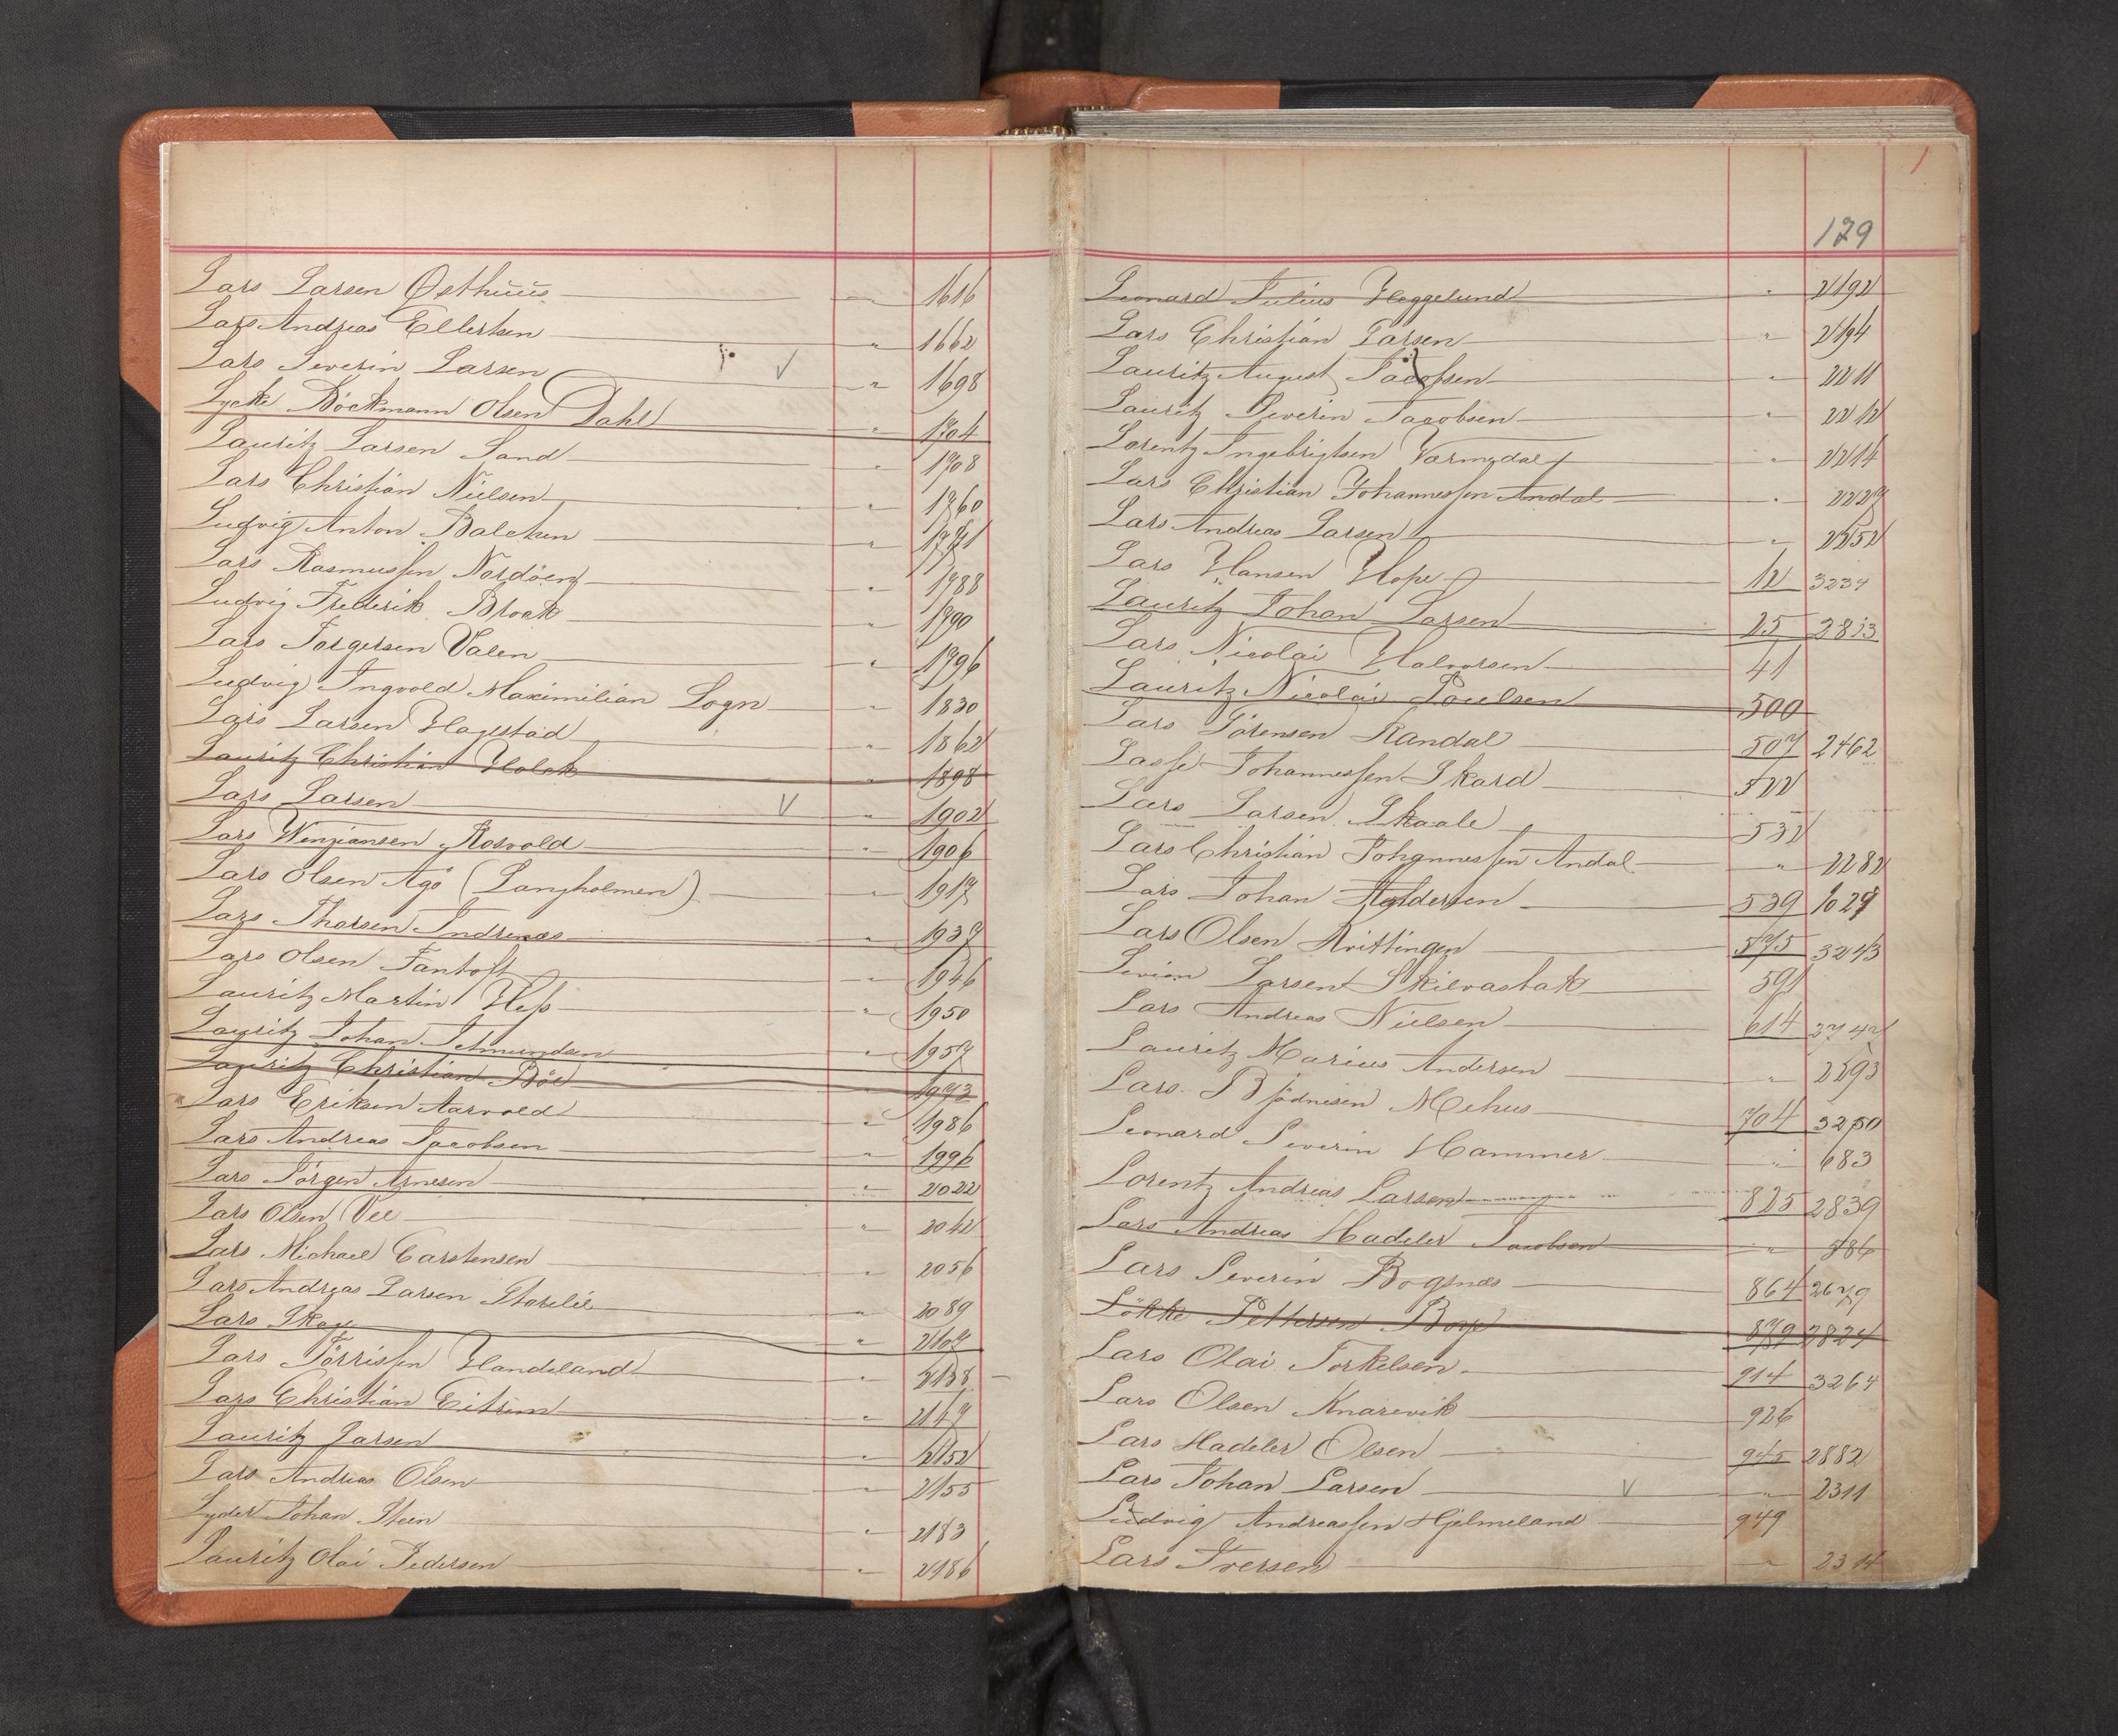 Lars Larsen Østhuus " 1616
Lars Andreas Ellertsen " 1662
Lars Severin Larsen V " 1698
Lycke Böckmann Olsen Dahl " 1704
Lauritz Larsen Sand " 1708
Lars Christian Nielsen " 1760
Ludvig Anton Balchen " 1771
Lars Rasmussen Nordöen " 1788
Ludvig Frederik Broak " 1790
Lars Torgersen Valen " 1796
Ludvig Ingvold Maximilian Logn " 1830
Lars Larsen Hagestad " 1862
Lauritz Christian Holck " 1898
Lars Larsen V " 1902
Lars Rosvold " 1906
Lars Olsen Agø (Langholmen) " 1917
Lars Thorsen Indrenæs " 1937
Lars Olsen Fantoft " 1946
Lauritz Martin Hess " 1950
Lauritz Johan " 1957
Lauritz Christian Böe " 1973
Lars Eriksen Aarvold " 1986
Lars Andreas Jacobsen " 1996
Lars Jörgen Arnesen " 2022
Lars Olsen Vee " 2042
Lars Michael Carstensen " 2056
Lars Andreas Larsen Storelie " 2089
Lars Skage " 2107
Lars Törrissen Handeland " 2138
Lars Christian Eitrem " 2147
Lauritz Larsen " 2152
Lars Andreas Olsen " 2155
Lyder Johan Steen " 2183
Lauritz Olai Pedersen " 2186
1
179
Leonard Julius Heggelund " 2192
Lars Christian Larsen " 2194
Lauritz August Jacobsen " 2211
Lauritz Severin Jacobsen " 2212
Lorentz Ingebrigtsen Varmdal " 2214
Lars Christian Johannessen Andal " 2227
Lars Andreas Larsen " 2252
Lars Hansen Hope 12 3234
Lauritz Johan Larsen 25 2833
Lars Nicolai Halvorsen 41
Lauritz Nicolai Poulsen 500
Lars Sörensen Randal 507 2462
Lasse Johannessen Skard 522
Lars Larsen Skaale 532
Lars Christian Johannessen Andal " 2282
Lars Johan Haldersen 539 1029
Lars Olsen Kvittingen 575 3243
Sevrin Larsen Skilvasbak 591
Lars Andreas Nielsen 614 2747
Lauritz Marius Andersen " 2293
Lars Mehus 704 3250
Leonard Severin Hammer " 683
Lorentz Andreas Larsen 825 2839
Lars Andreas Hadeler Jacobsen " 586
Lars Severin Bogsnæs 864 2679
Lökke Pettersen Borge 879 2824
Lars Olai Torkelsen 914 3264
Lars Olsen Knarevik 926
Lars Hadeler Olsen 945 2882
Lars Johan Larsen V " 2311
Ludvig Andreassen Hjelmeland 949
Lars Iversen " 2314